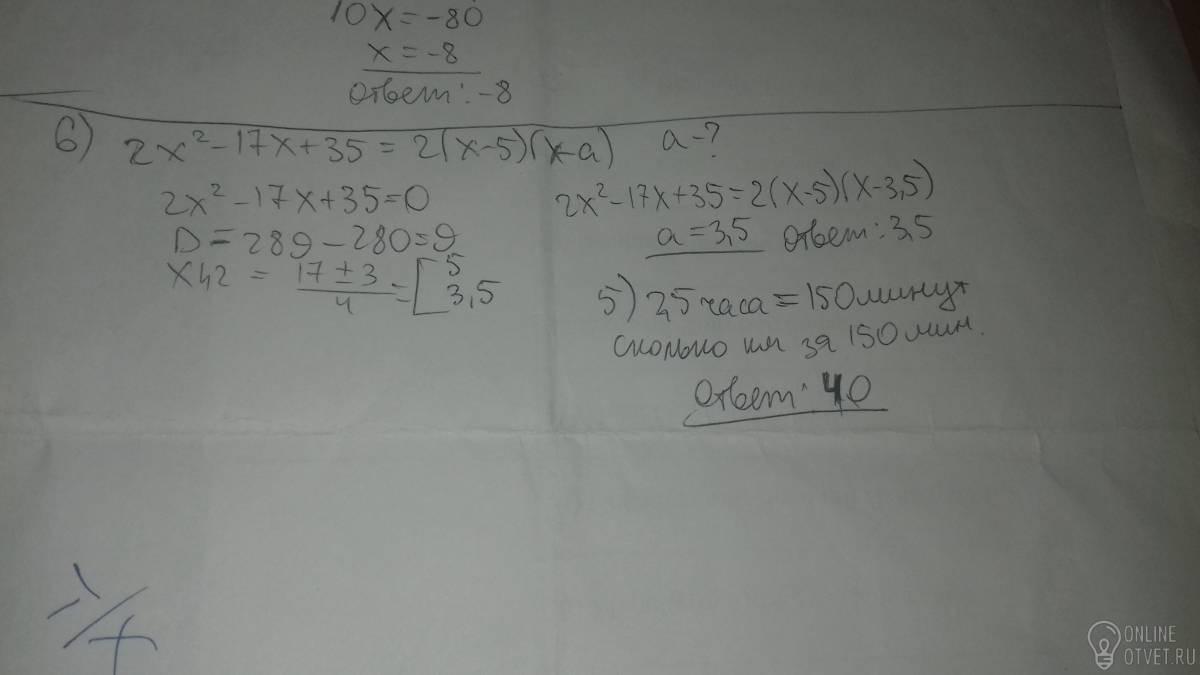 10x = -80
x = -8
ответ: -8
6) 2x² - 17x + 35 = 2(x-5)(x-a) a - ?
2x² - 17x + 35 = 0
D = 289 - 280 = 9
x1,2 = 17 ± 3 / 4 = [ 5 3,5
2x² - 17x + 35 = 2(x-5)(x-3,5)
a = 3,5 ответ: 3,5
5) 2,5 часа = 150 минут
сколько км за 150 мин.
ответ: 40
ONLINE
OTVET.RU